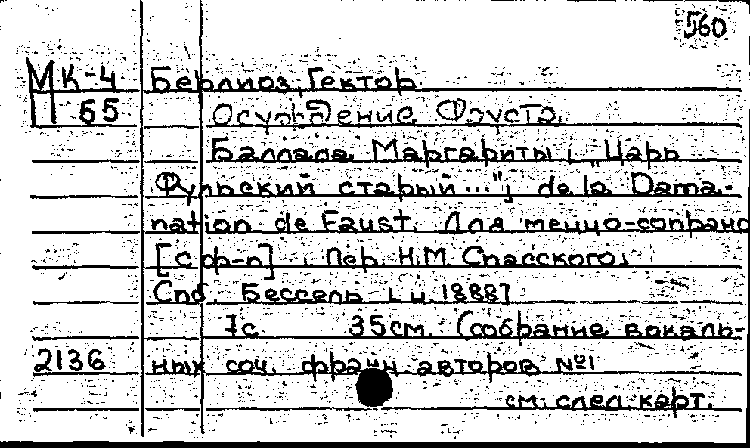 560
МК-4 Берлиоз, Гектор.
Б5 Осуждение Фауста.
Баллада Маргариты „Царь
Фульский старый..." de la Dam-
nation de Faust. Для меццо-сопрано
[с ф-п]. Пер. Н.М. Спасского.
Спб. Бессель [ц. 1888]
7с 35см. (собрание вокаль-
2136 ных соч. франц. авторов №1
см. след. карт.